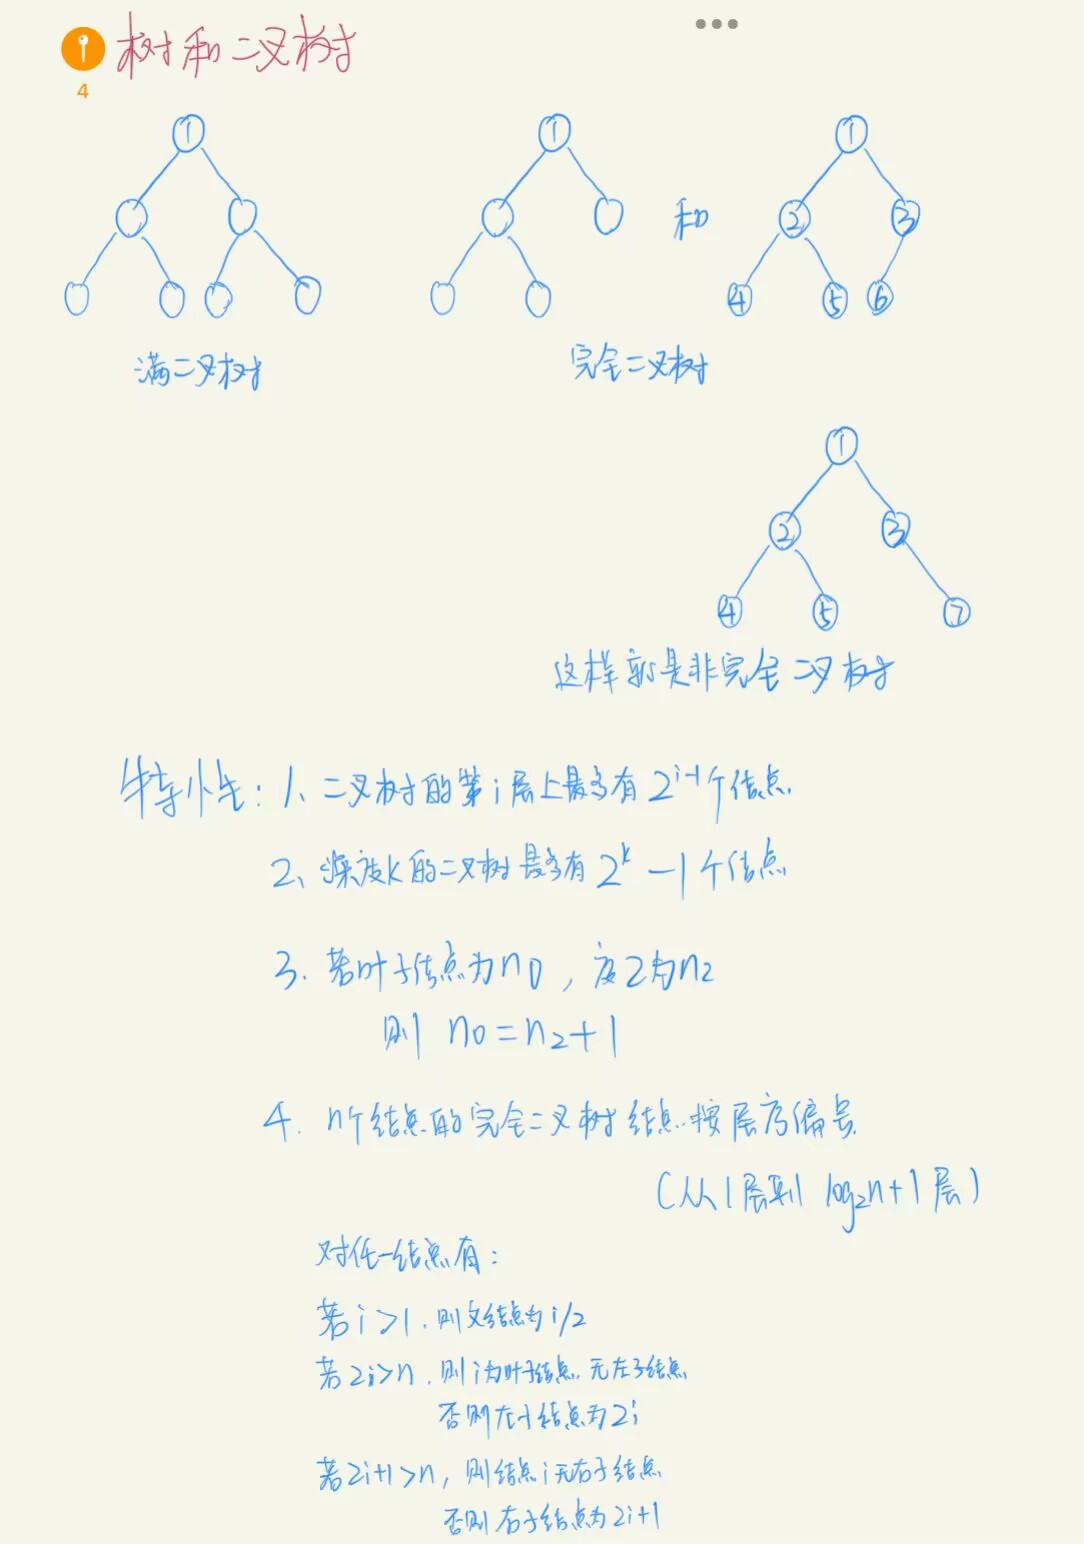 树和二叉树
4
1
1
和
1
2
3
4
5
6
满二叉树
完全二叉树
1
2
3
4
5
7
这样就是非完全二叉树
特性：1、二叉树的第i层上最多有2^{i-1}个结点
2、深度k的二叉树最多有2^k-1个结点
3. 若叶子结点为n0，度2为n2
则 n0=n2+1
4. n个结点的完全二叉树结点按层序编号
(从1层到 log₂n+1层)
对任一结点有：
若i>1，则父结点为i/2
若2i>n，则i为叶子结点，无左子结点
否则左子结点为2i
若2i+1>n，则结点i无右子结点
否则右子结点为2i+1